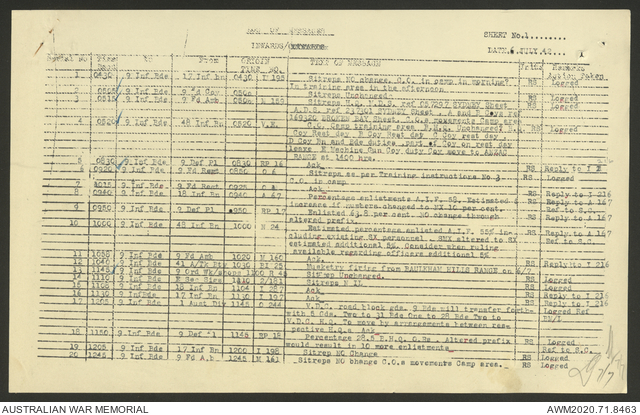 SHEET No.1........
INWARDS/
DATE 6 JULY 42
Serial No TIME To From ORIGIN TIME NO. TEXT OF MESSAGE Remarks Action Taken
1 0430 9 Inf Bde 17 Inf Bn 0430 I 195 Sitrep NO change. C.O. in camp in morning? RS Logged
In training area in the afternoon
2 0505 9 Inf Bde 9 Fd Coy 0500 Sitrep Unchanged. RS Logged
3 0515 9 Inf Bde 9 Fd Amb 0500 M 159 Sitrep H.Q. M.D.S. ref 057297 SYDNEY Sheet RS Logged
A.D.S. ref SYDNEY Sheet. A and B Coys ref
169320 BROKEN BAY Sheet. C.O.s movements Camp area
4 0520 9 Inf Bde 48 Inf Bn 0520 C.O. Camp training area. Unchanged? RS Logged
Coy Rest day B Coy Rest day C Coy rest day
D Coy Bn and Bde duties, part of Coy on rest day
leave. E Machine Gun Coy duty Coy move to ANZAC
RANGE at 1400 hrs.
5 0830 9 Inf Bde 9 Def Pl 0830 RP 16 Ack. RS
6 0920 9 Inf Bde 9 Fd Regt 0850 O 6 Sitrep as per Training instructions No 3. RS Logged
C.O in camp
7 0915 9 Inf Bde 9 Fd Regt 0925 Ack. RS Reply to I 216
8 0940 9 Inf Bde 18 Inf Bn 0940 A 67 Percentage enlistments A.I.F. 58. Estimated RS Reply to A 167
increase if numbers changed to NX 10 per cent. Ref to S.C.
9 0950 9 Inf Bde 9 Def Pl 0950 RP 17 Enlisted 63.8 per cent. NO change through RS Reply to A 167
altered prefix.
10 1000 9 Inf Bde 48 Inf Bn 1000 N 24 Estimated percentage enlisted A.I.F. 55% in- RS Reply to A 167
cluding existing SX personnel. SMX altered to SX Ref to S.C.
estimated additional 5%. Consider when ruling
available regarding officers additional 5%
11 1038 9 Inf Bde 9 Fd Amb 1020 M 160 Ack. RS Reply to I 216
12 1040 9 Inf Bde 41 A/Tk Bty 1030 BI 25 Musketry firing from PAULKHAM HILLS RANGE on 6/7. RS Logged
13 1145 9 Inf Bde 9 Ord Wkshops 1100 R 45 Sitrep Unchanged. RS Logged
14 1110 9 Inf Bde E Sec Sigs 1110 Z/181 Sitrep NIL RS Logged
15 1108 9 Inf Bde 18 Inf Bn 1104 I 287 Ack. RS Reply to I 216
16 1130 9 Inf Bde 17 Inf Bn 1130 I 197 Ack. RS Reply to I 216
17 1205 9 Inf Bde 1 Aust Div 1145 O 244 V.D.C. road block gds. 9 Bde will transfer forth- RS Logged Ref
with 5 Gds. Two to 31 Bde One to 28 Bde Two to BM/I
V.D.C. H.Q. To move by arrangements between res-
pective H.Q.s Ack
18 1150 9 Inf Bde 9 Def Pl 1145 RP 18 Percentage 28.5 B.H.Q. O.Rs. Altered prefix RS Logged
would result in 10 more enlistments. Ref to S.C.
19 1205 9 Inf Bde 17 Inf Bn 1200 I 198 Sitrep NO Change RS Logged
20 1245 9 Inf Bde 9 Fd Amb 1245 M 161 Sitreps NO change C.O.s movements Camp area. RS Logged
7/7
AUSTRALIAN WAR MEMORIAL
AWM2020.71.8463